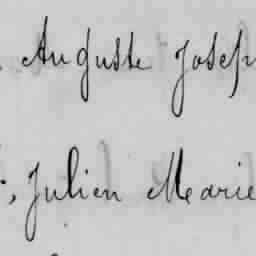 Auguste Josep
, Julien Marie